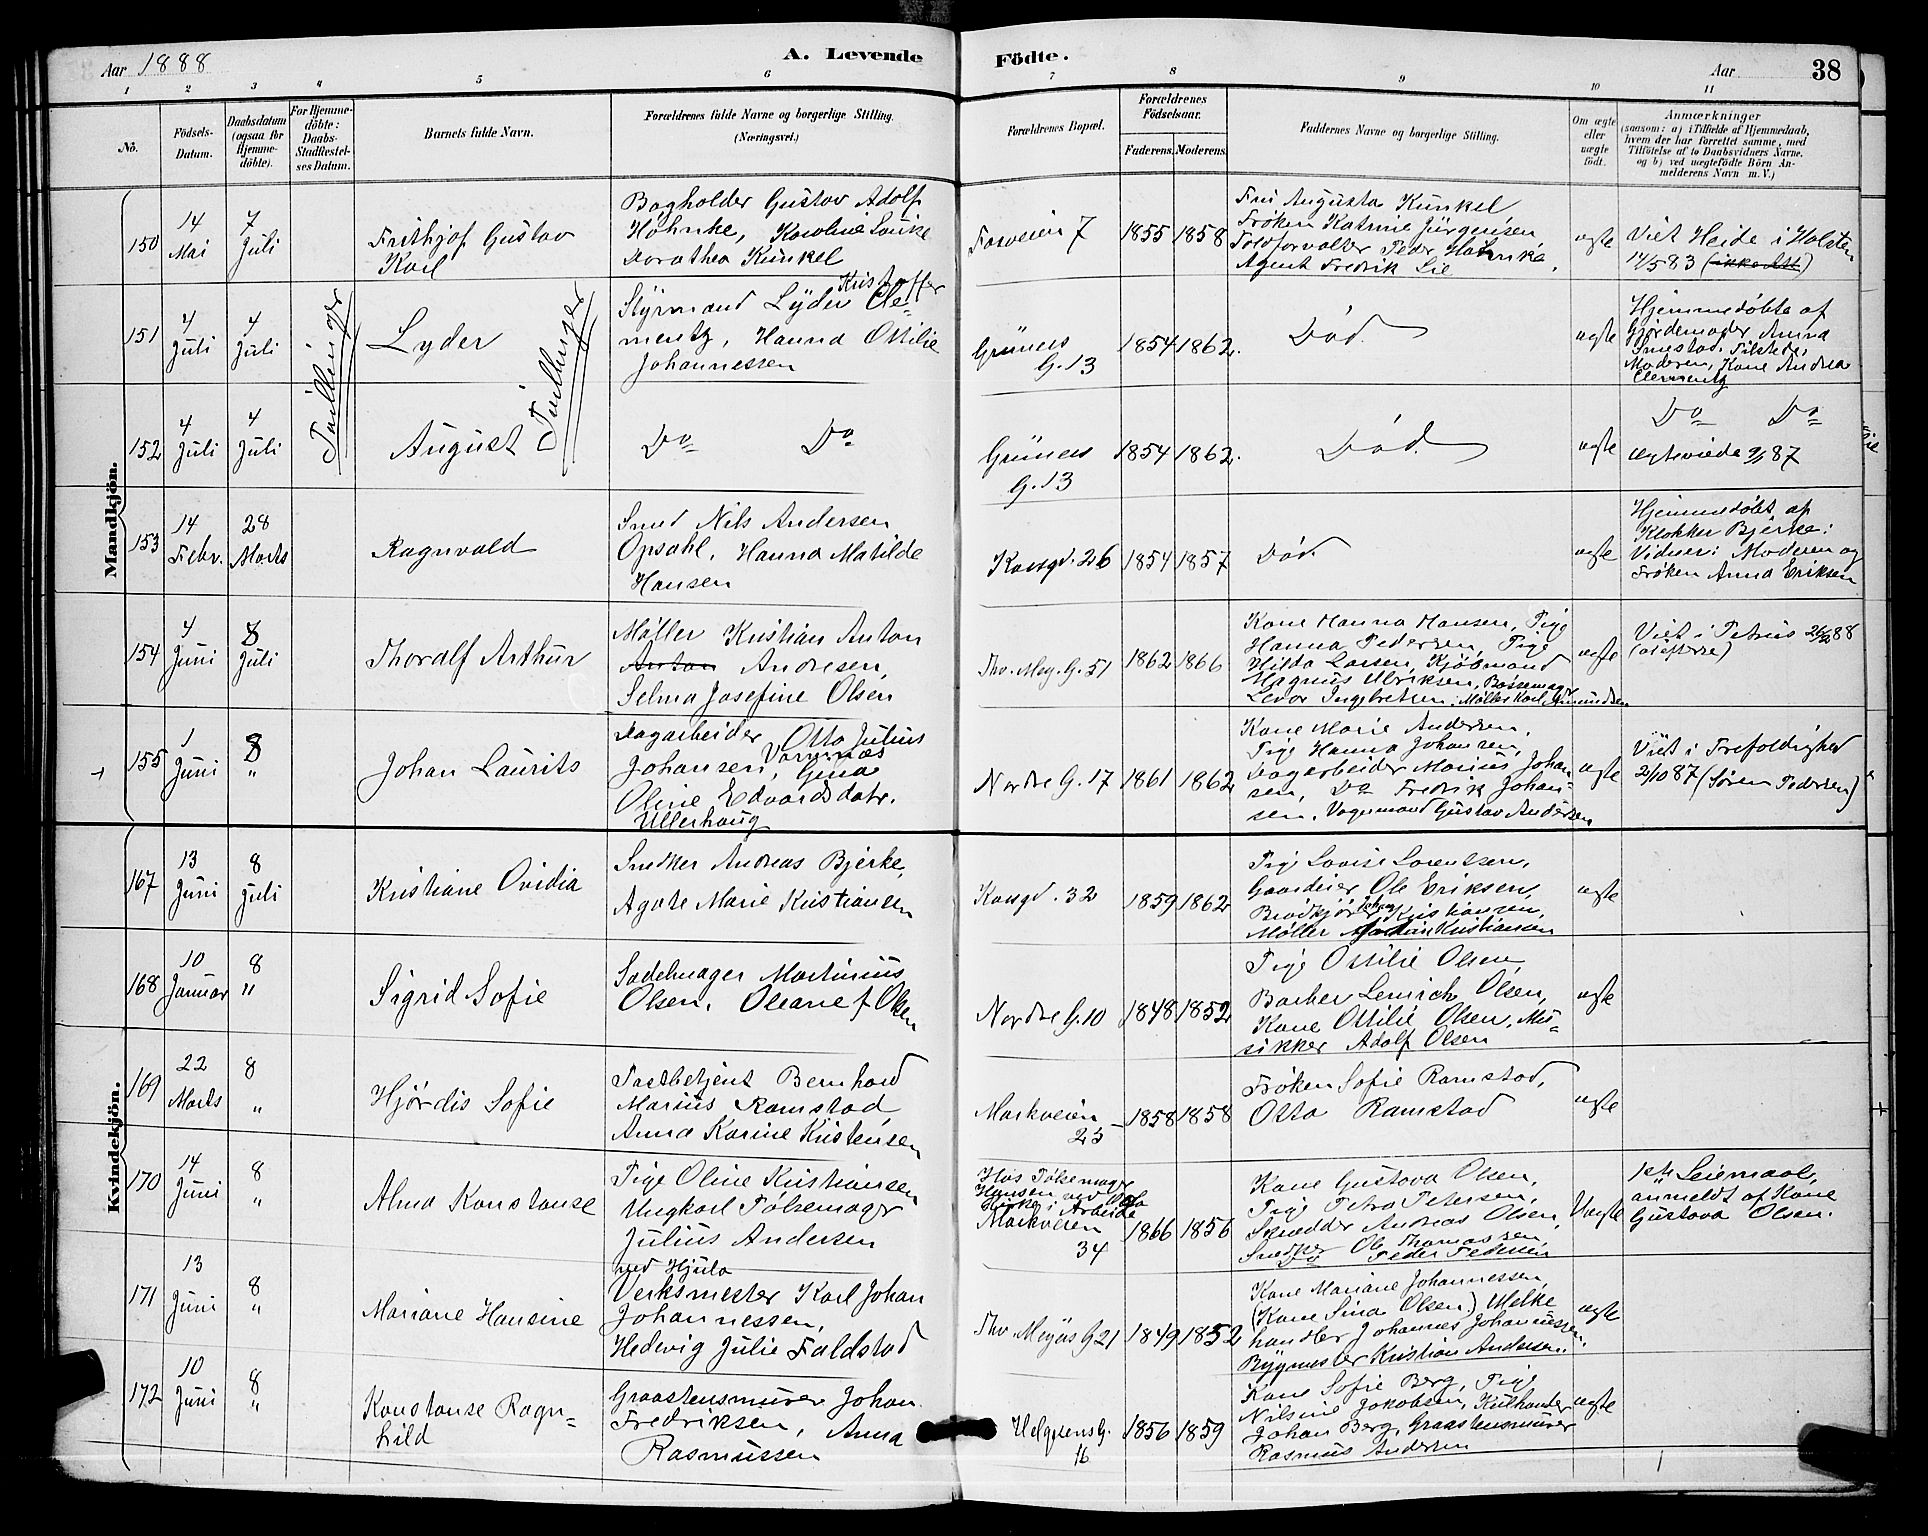 Aar 1888
A. Levende Födte.
Aar
38
1 2 3 4 5 6 7 8 9 10 11
No.
Födsels-
Datum.
Daabsdatum
(ogsaa for
Hjemme-
döbte).
For Hjemme-
döbte:
Daabs-
Stadfæstel-
ses Datum.
Barnets fulde Navn.
Forældrenes fulde Navne og borgerlige Stilling.
(Næringsvei.)
Forældrenes Bopæl.
Forældrenes
Födselsaar.
Faderens. Moderens.
Faddernes Navne og borgerlige Stilling.
Om ægte
eller
uægte
födt.
Anmærkninger
(saasom: a) i Tilfælde af Hjemmedaab,
hvem der har forrettet samme, med
Tilföielse af to Daabsvidners Navne,
og b) ved uægtefödte Börn An-
melderens Navn m. V.)
Mandkjön.
150
14
Mai
7
Juli
Frithjof Gustav
Karl
Bogholder Gustav Adolf
Høhnke, Karoline Louise
Dorothea Kunkel
Fosveien 7
1855 1858
Fru Augusta Kunkel
Frøken Katrine Jürgensen
Toldforvalter Peder
Agent Fredrik Lie
ægte
Viet Heide i Holsten
14/5 83
151
4
Juli
4
Juli
Tvillinger
Lyder
Tvillinger
Kristoffer
Styrmand Lyder Cle-
mentz, Hanna Ottilie
Johannessen
Grüners
G. 13
1854 1862.
Død.
ægte
Hjemmedøbte af
Gjordemoder Anna
Smestad. Tilstede,
Moderen, Kone Andrea
Clementz
152
4
Juli
4
Juli
August
Do Do
Grüners
G. 13
1854 1862.
Død.
ægte
Do Do
Ægteviede 87
153
14
Febr.
28
Marts
Ragnvald
Smed Nils Andersen
Opsahl, Hanna Matilde
Hansen
Korsgd. 26
1854 1857
Død.
ægte
Hjemmedøbt af
Klokker Bjerke:
Vidner: Moderen og
Frøken Anna Eriksen
154
4
Juni
8
Juli
Thoralf Arthur
Møller Kristian Anton
Anton Andresen,
Selma Josefine Olsen
Thv. Mey. G. 51
1862 1866
Kone Hanna Hansen, Pige
Hanna Pedersen, Pige
Hilda Larsen, Kjøbmand
Magnus Ulriksen, Bøssemager
Levor Ingebretsen, Møller Karl Amundsen
ægte
Viet i Petrus 88
155
1
Juni
8
"
Johan Laurits
Dagarbeider Otto Julius
Johansen Varnnæs
, Gina
Oline Edvardsdatr.
Ullerhaug
Nordre G. 17
1861 1862
Kone Marie Andersen,
Pige Hanna Johansen,
Dagarbeider Marius Johan-
sen, Do Fredrik Johan-
sen, Vognmand Gustav Andersen
ægte
Viet i Trefoldighed
2/10 87 (Søren Pedersen)
Kvindekjön.
167
13
Juni
8
Juli
Kristiane Ovidia
Snedker Andreas Bjerke,
Agate Marie Kristiansen
Korsgd. 32
1859 1862
Pige Lovise Lorentsen,
Gaardeier Ole Eriksen,
Brødkjører Johan Kristiansen,
Møller Kristiansen
ægte
168
10
Januar
8
"
Sigrid Sofie
Sadelmager Martinius
Olsen, Oleane f. Olsen
Nordre G. 10
1848 1852
Pige Ottilie Olsen,
Barber Lenrich Olsen,
Kone Ottilie Olsen, Mu-
sikker Adolf Olsen
ægte
169
22
Marts
8
"
Hjørdis Sofie
Postbetjent Bernhard
Marius Ramstad
Anna Karine Kristensen
Markveien
25
1858 1858
Frøken Sofie Ramstad,
Otto Ramstad
ægte
170
14
Juni
8
"
Alma Konstanse
Pige Oline Kristiansen
Ungkarl Pølsemager
Julius Andersen
Hos Pølsemager
Hansen ved
i Arbeide
Markveien
34
1866 1856
Kone Gustava Olsen,
Pige Petra Petersen,
Skrædder Andreas Olsen,
Snedker Ole Thomassen,
Do Peder Pedersen
Uægte
1ste Leiermaal,
anmeldt af Kone
Gustava Olsen.
171
13
Juni
8
"
Mariane Hansine
ved Hjula
Verksmester Karl Johan
Johannessen,
Hedevig Julie Faldstad
Thv. Meyers G 21
1849 1852
Kone Mariane Johannessen,
(Kone Sina Olsen) Melke
handler Johannes Johannessen,
Bygmester Kristian Andresen.
ægte
172
10
Juni
8
"
Konstanse Ragn-
hild
Graastensmurer Johan
Fredriksen, Anna
Rasmussen
Helgesens G.
16
1856 1859
Kone Sofie Berg, Pige
Nilsine Jakobsen, Kulhandler
Johan Berg, Graastensmurer
Rasmus Andersen
ægte